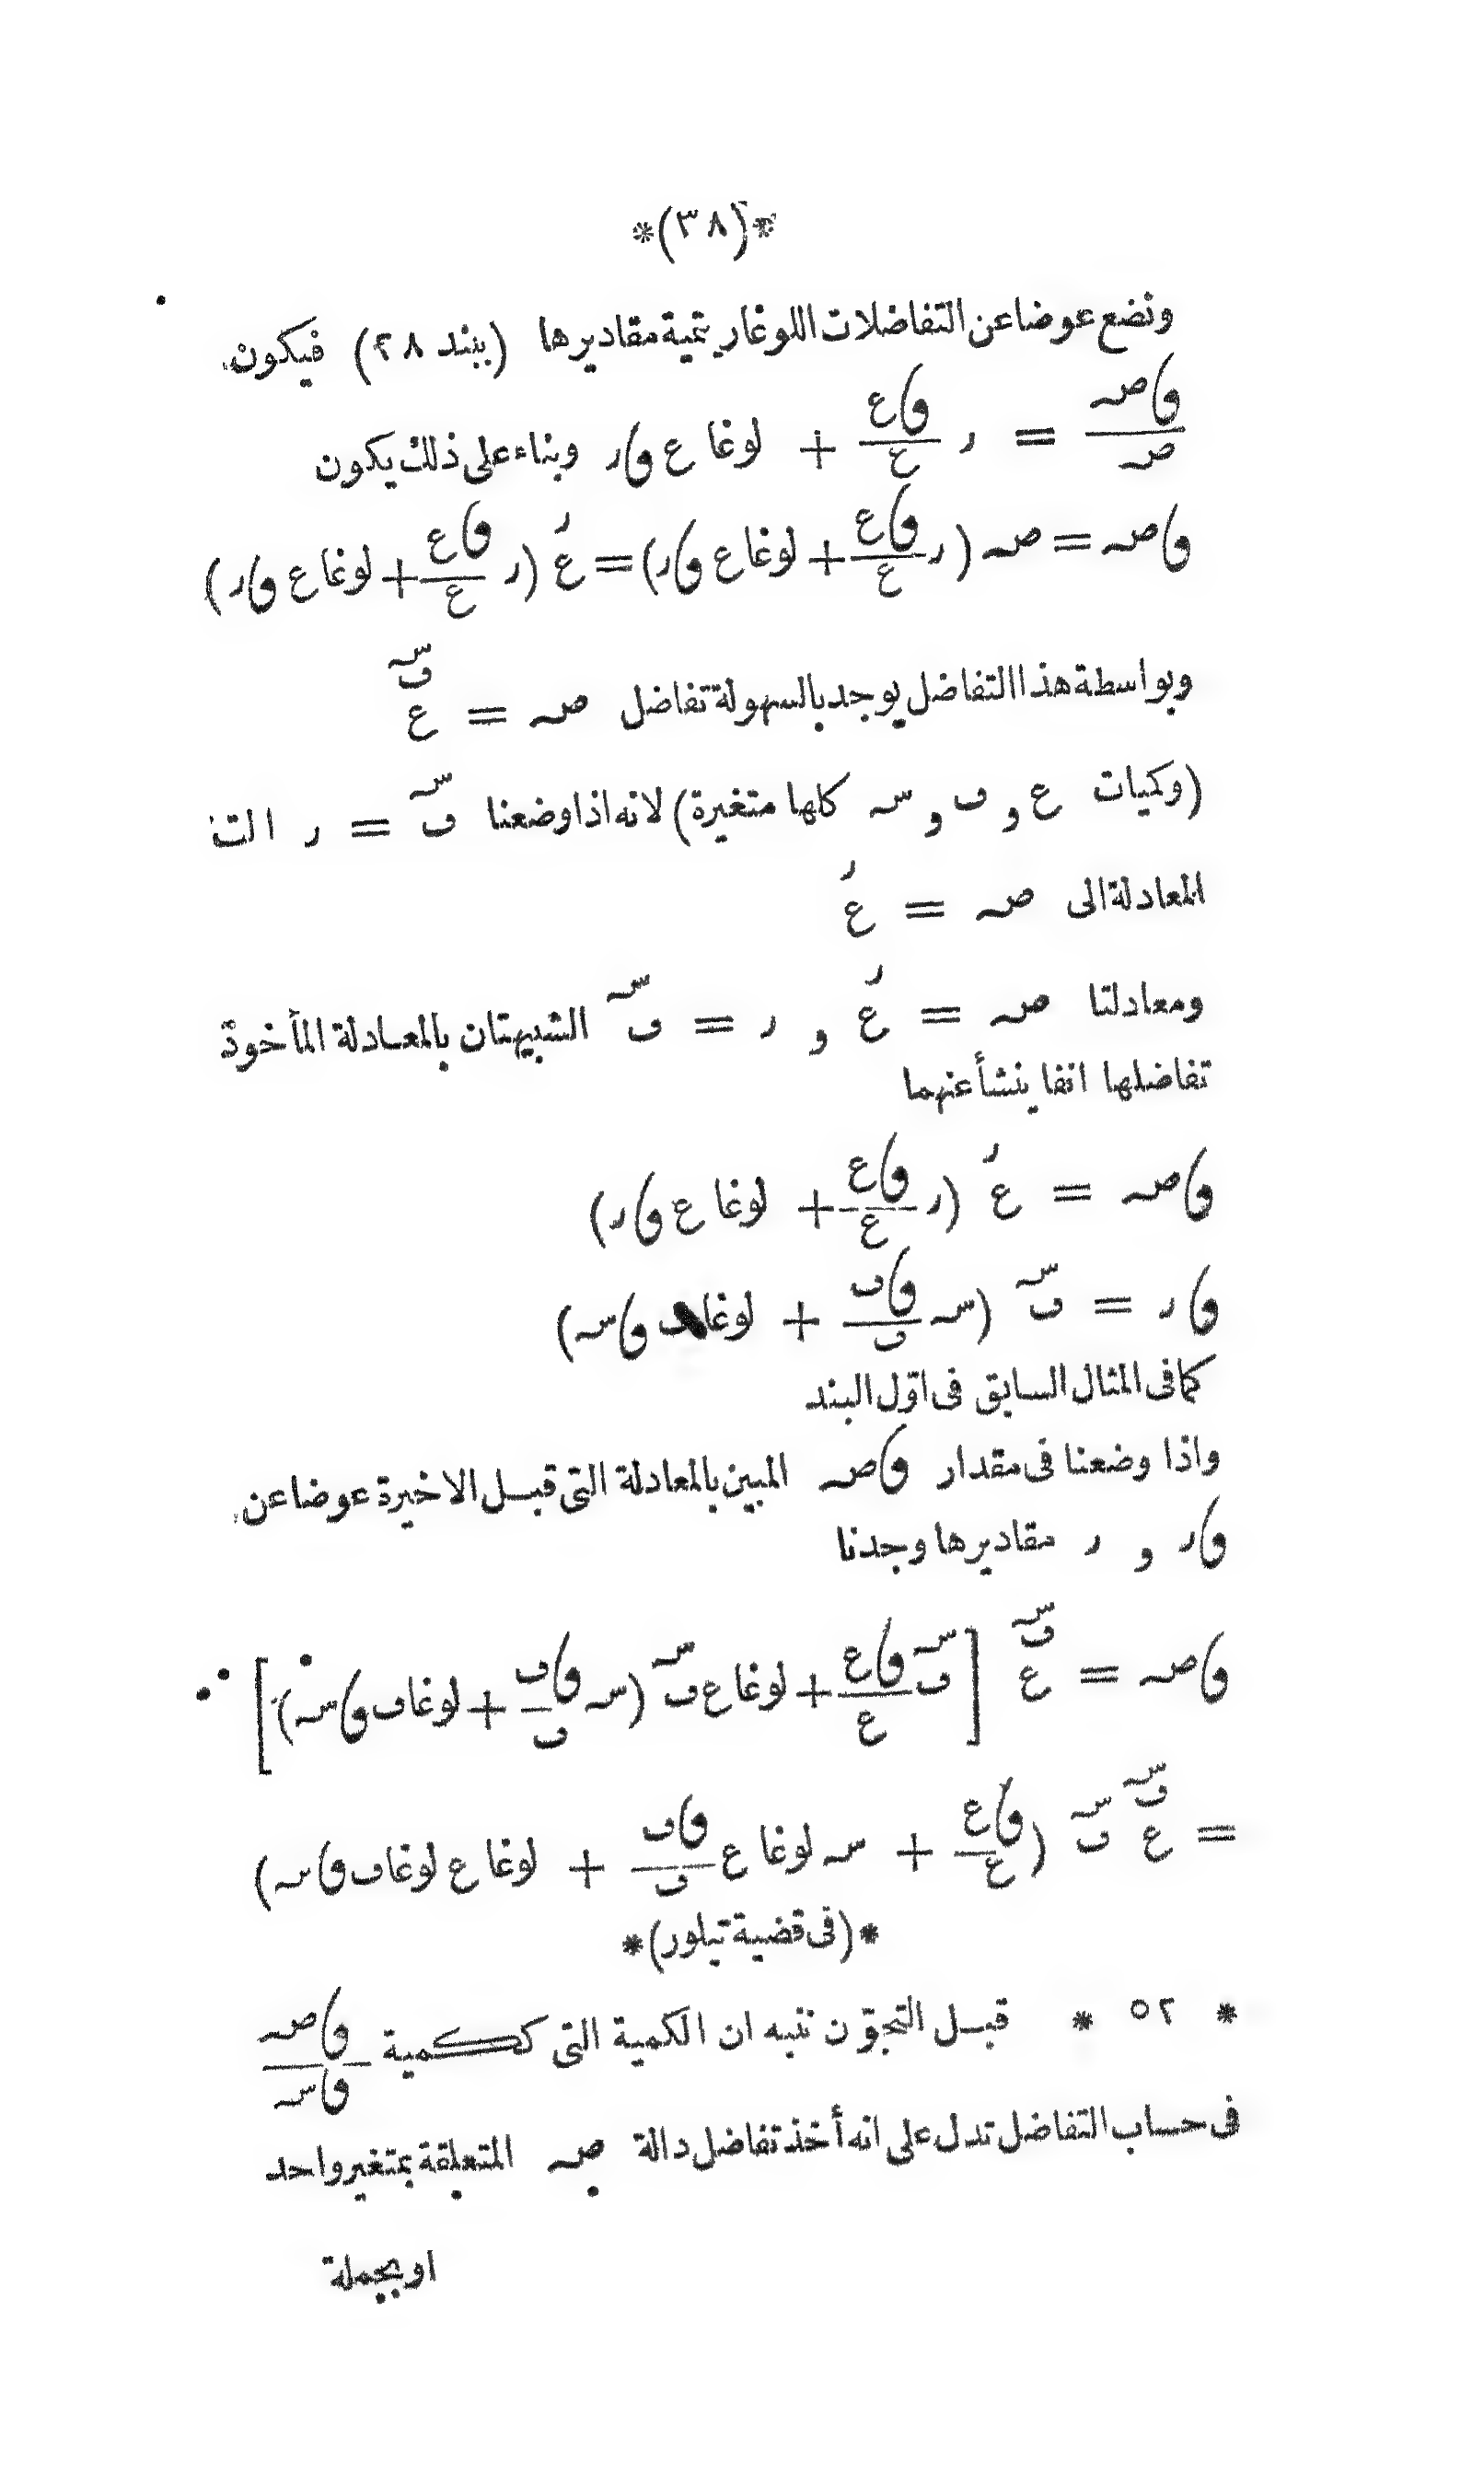 *(٣٨)*
ونضع عوضا عن التفاضلات اللوغاريتمية مقاديرها (ببند ٢٨) فيكون
\frac{وٯ صـ}{صـ} = ر \frac{وٯ ع}{ع} + لوغا ع وٯ ر وبناء على ذلك يكون
وٯ صـ = صـ (ر \frac{وٯ ع}{ع} + لوغا ع وٯ ر) = ع^{ر} (ر \frac{وٯ ع}{ع} + لوغا ع وٯ ر)
وبواسطة هذا التفاضل يوجد بالسهولة تفاضل صـ = ع^{ف^{سـ}}
(وكميات ع و ف و سـ كلها متغيرة) لانه اذا وضعنا ف^{سـ} = ر الت
المعادلة الى صـ = ع^{ر}
ومعادلتا صـ = ع^{ر} و ر = ف^{سـ} الشبيهتان بالمعادلة المأخوذة
تفاضلها انفا ينشأ عنهما
وٯ صـ = ع^{ر} (ر \frac{وٯ ع}{ع} + لوغا ع وٯ ر)
وٯ ر = ف^{سـ} (سـ \frac{وٯ ف}{ف} + لوغا ف وٯ سـ)
كما فى المثال السابق فى اوّل البند
واذا وضعنا فى مقدار وٯ صـ المبين بالمعادلة التى قبل الاخيرة عوضا عن
وٯ ر و ر مقاديرها وجدنا
وٯ صـ = ع^{ف^{سـ}} [ف^{سـ} \frac{وٯ ع}{ع} + لوغا ع ف^{سـ} (سـ \frac{وٯ ف}{ف} + لوغا ف وٯ سـ)]
= ع^{ف^{سـ}} ف^{سـ} (\frac{وٯ ع}{ع} + سـ لوغا ع \frac{وٯ ف}{ف} + لوغا ع لوغا ف وٯ سـ)
*(فى قضية تيلور)*
* ٥٢ * قبل التجوّن ننبه ان الكمية التى ككمية \frac{وٯ صـ}{وٯ سـ}
فى حساب التفاضل تدل على انه أخذ تفاضل دالة صـ المتعلقة بمتغير واحد
او بجملة